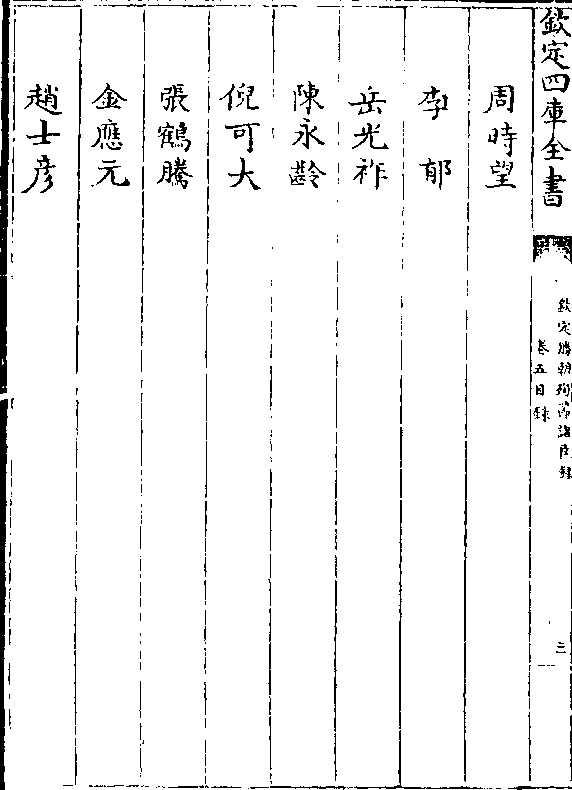 欽定四庫全書
欽定勝朝殉節諸臣錄
卷五目錄
三
周時望
李郁
岳光祚
陳永齡
倪可大
張鶴騰
金應元
趙士彥